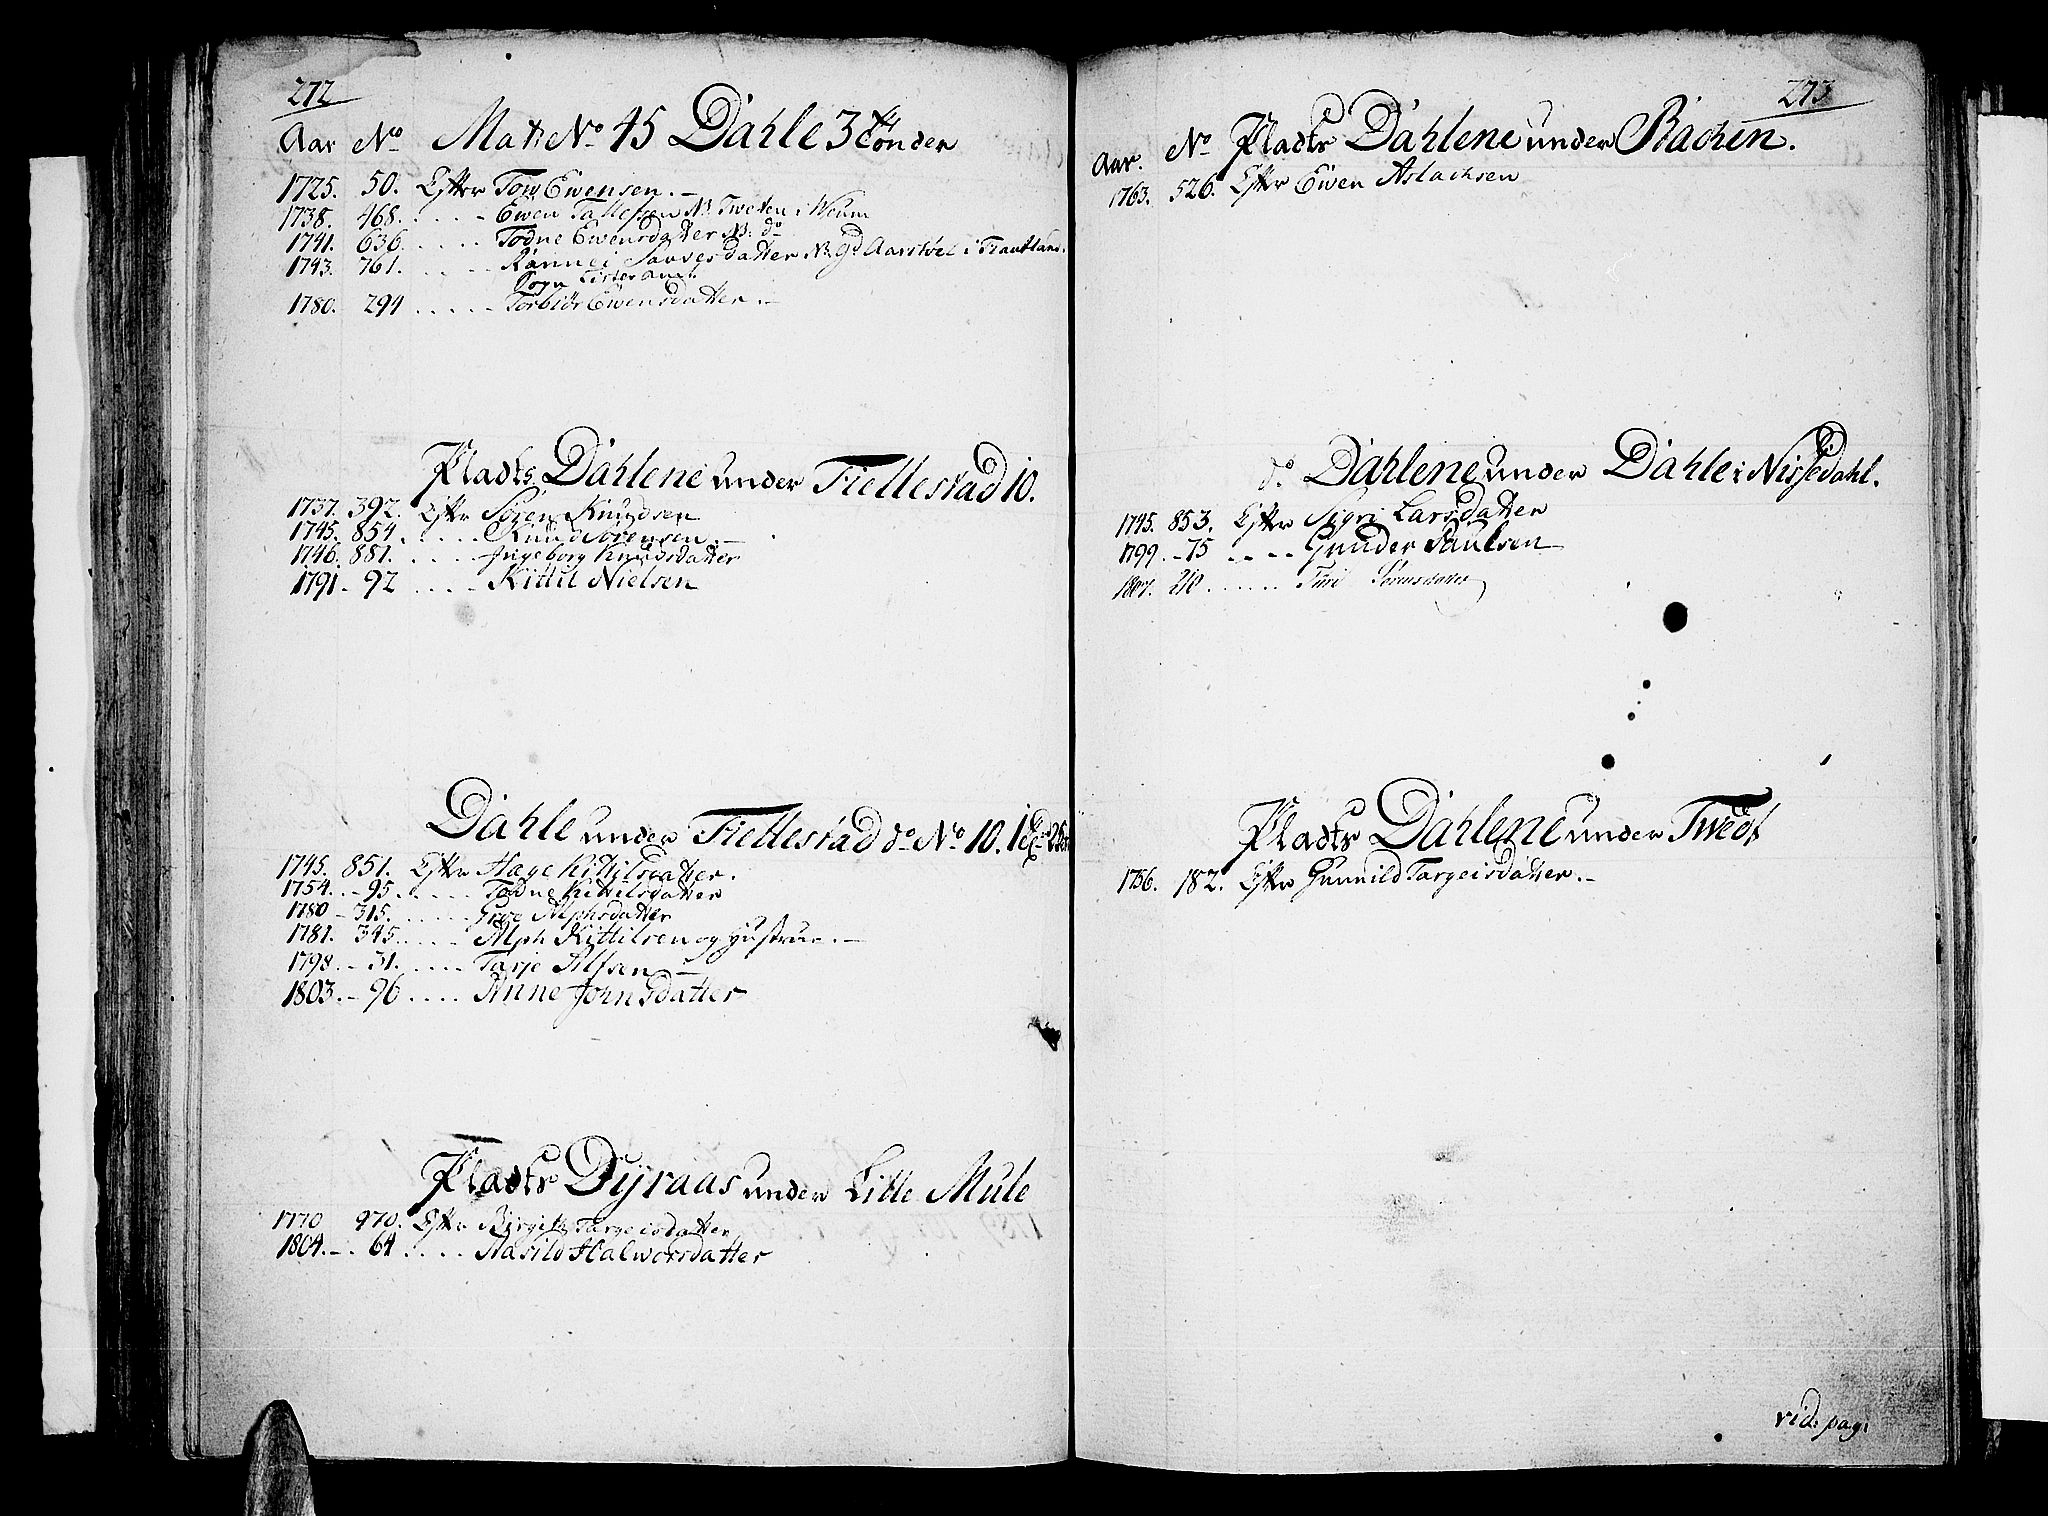 272
Aar No Mat: No 45 Dahle 3 tønder
1725. 50. Efter Tow Ewensen. –
1738. 468. . . . . - Ewen Tallefsen N: Tweten i Weum
1741. 636. . . . . Todne Ewensdatter N: do
1743. 761. . . . . Rannei Sawesdatter N: Gd Aarstøel i
Sogn Lister Amt.
1780. 294 . . . . . Torbiør Ewensdatter. –
Pladts Dahlene under Fiellestad 10.
1737. 392. Efter Søren Knudsen
1745. 854. . . . . Knud Sørensen. –
1746. 881. . . . . Ingeborg Knudsdatter
1791. - 92 . . . . Kittil Nielsen
Dahle under Fiellestad do No 10.
1745. 851. Efter Hæge Kittilsdatter.
1754. - 95. . . . . Todne Kittilsdatter
1780 - 315. . . . . Groe Alphsdatter
1781. 345. . . . . Alph Kittilsen og Hustrue. –
1798. - 31. . . . . Tarje Alfsen –
1803. - 96 . . . . Anne Johnsdatter
Pladts Dyraas under Litle Mule
1770 970. Efter Birgith Targeisdatter
1804. - 64 . . . . Aasild Halworsdatter
273
Aar. No Pladts Dahlene under Bachen.
1763. 526. Efter Ewen Aslachsen
do Dahlene under Dahle i Nissedahl.
1745. 853. Efter Sigri Larsdatter
1799. - 75 . . . . Gunder Paulsen
1807. 210 . . . . . . Turi
Pladts Dahlene under Twedt
1756. 182. Efter Gunnild Targeisdatter. –
vid: pag: